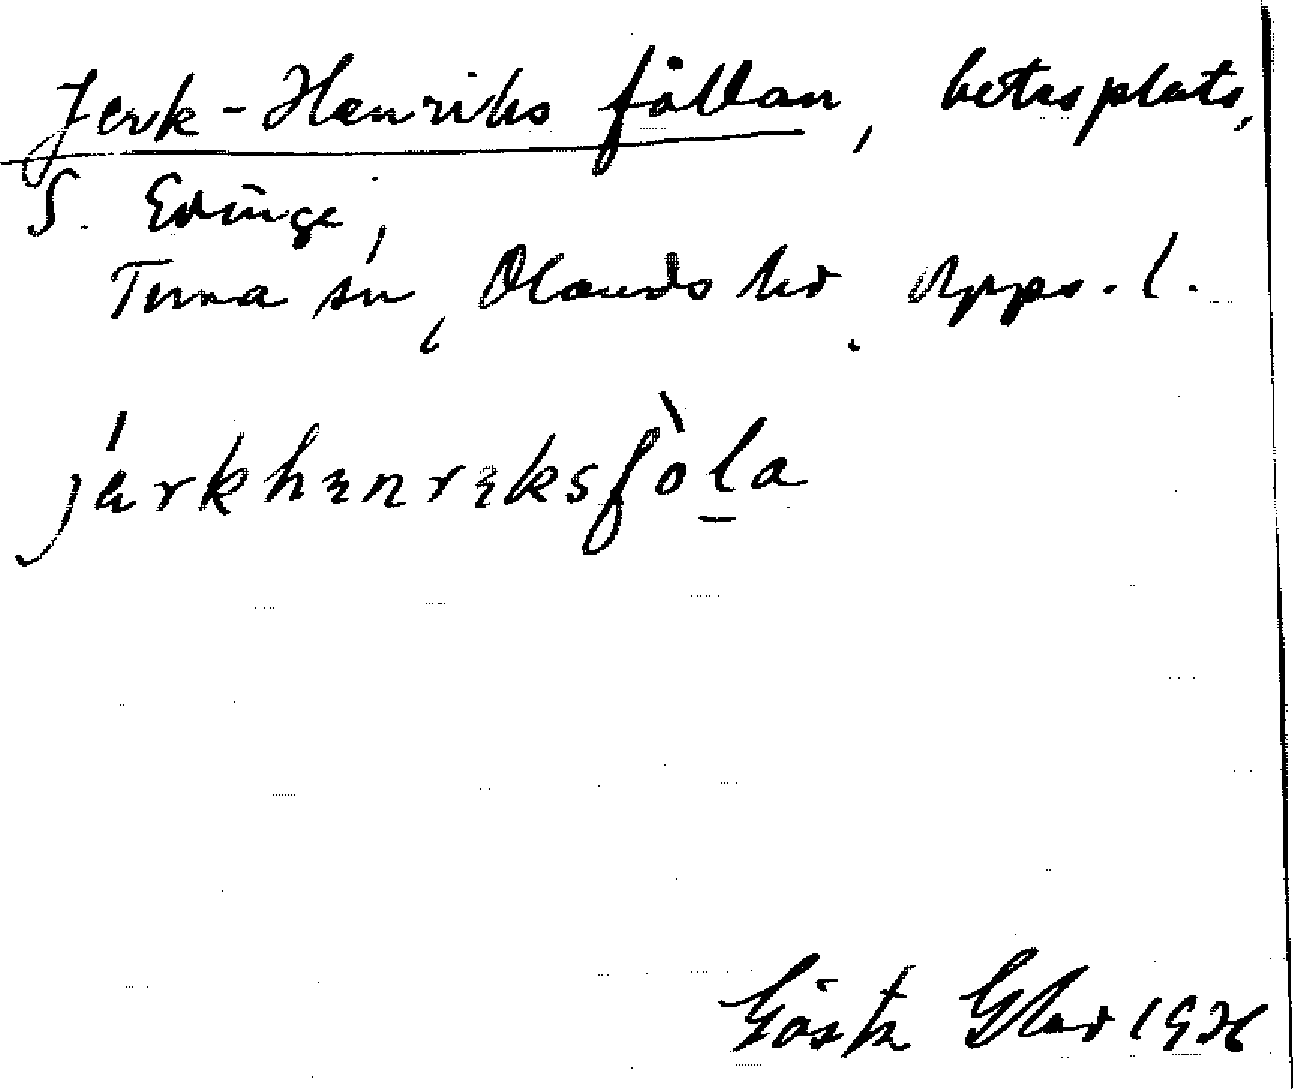 Jerk-Henriks fållan, betesplats,
S. Edinge,
Tuna sn, Olands hd. Upps. l.
järkhenreksfòla
Gösta Glad 1926